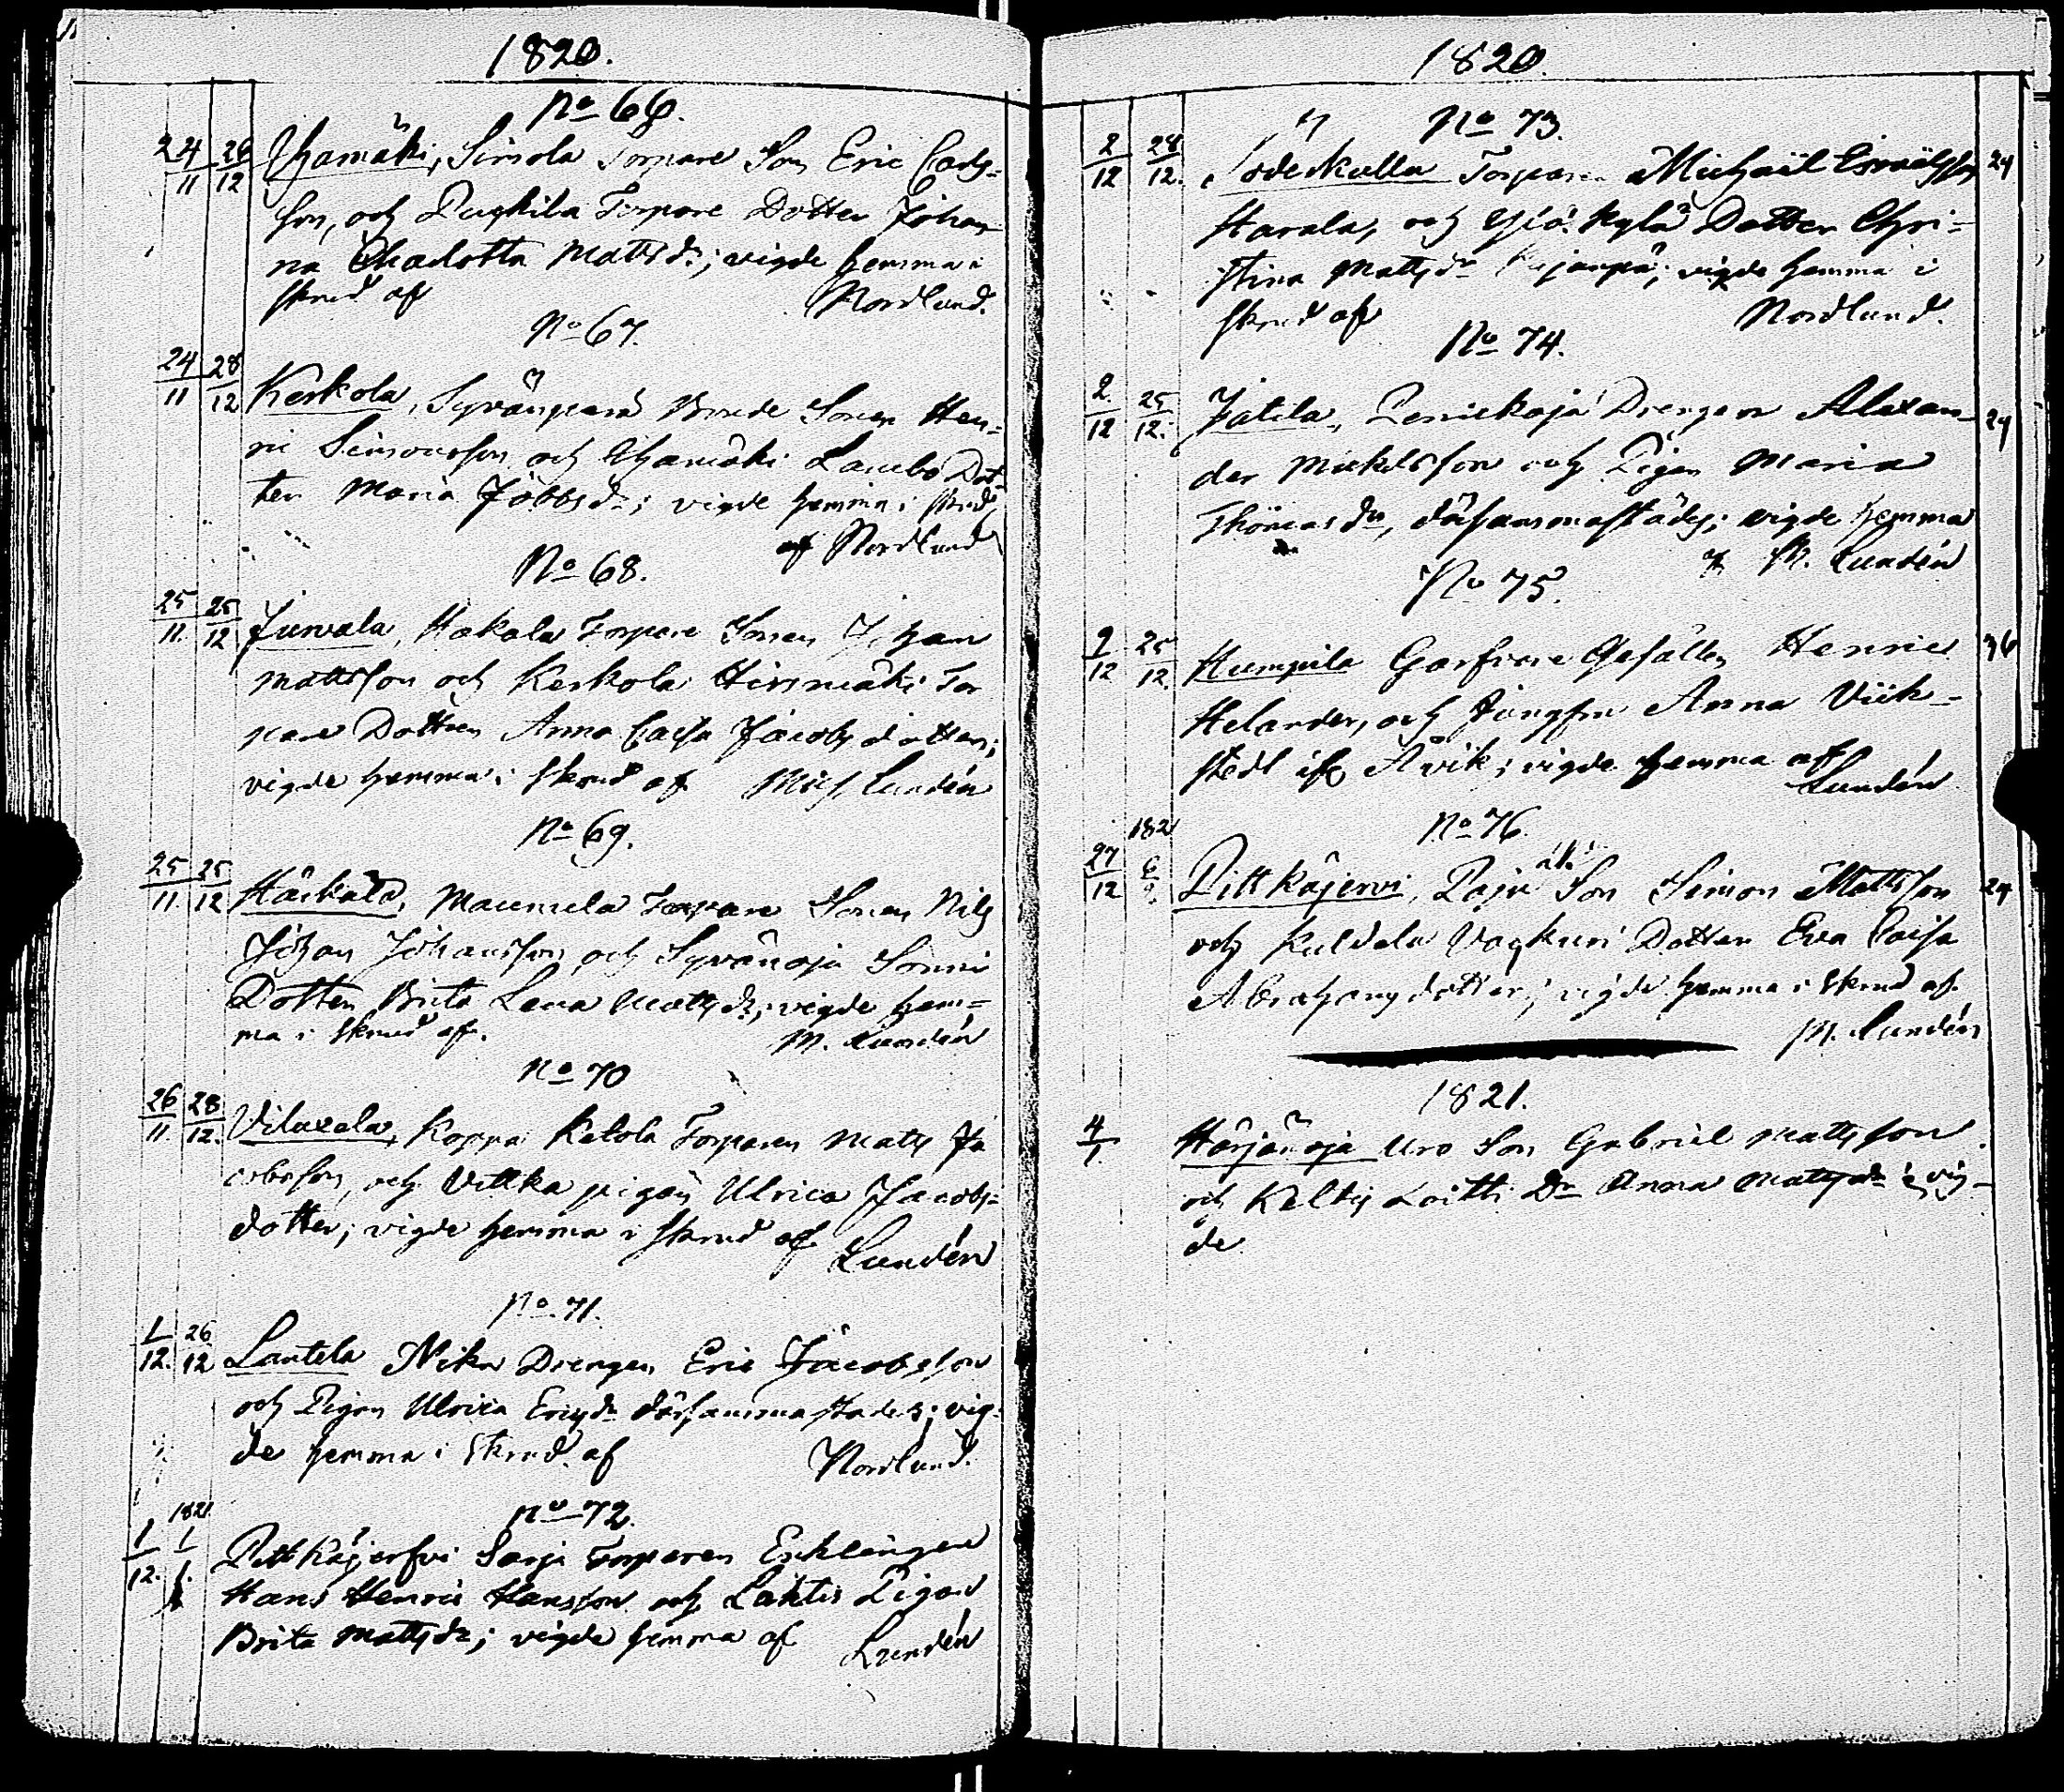 1820.
No 66.
24/11 26/12 Yhamäki, Simola Torpare Son Eric Carls=
son, och Puchkila Torpare Dotter Johan-
na Charlotta Mattsdr; vigde hemma i
skrud af Nordlund.
No 67.
24/11 28/12 Kerkola, Syvänpärä Bonde Sonen Hen=
ric Simonsson och Yhamäki Laurbo Dot-
ter Maria Jöbbsdr; vigde hemma i skrud
af Nordlund
No 68.
25/11. 25/12 Juwala, Hakala Torpare Sonen Johan
Mattsson och Kerkola Hirsmäki Tor
pare Dottren Anna Caisa Jacobs dotter;
vigde hemma i skrud af Mich. Lundén
No 69.
25/11 25/12 Häckälä, Maunula Torpare Sonen Nils
Johan Johansson och Syvänoja Sonni
Dotter Brita Lena Mattsdr; vigde hem=
ma i skrud af. M. Lundén
No 70
26/11. 28/12. Viluxala, Koppa Ketola Torparen Matts Ja
cobsson, och Vittka pigan Ulrica Jacobs=
dotter; vigde hemma i skrud af Lundén
No. 71.
1/12. 26/12 Lautela Nika Drengen Eric Jacobsson
och Pigan Ulrica Ericsdr därsammastädes; vig-
de hemma i skrud af Nordlund.
No 72.
1821
1/12. 1/1. Pittkäjerfvi Sarja Torparen Enklingen
Hans Henric Hansson och Lahtis Pigan
Brita Mattsdr; vigde hemma af Lundén
1820.
No 73.
2/12 28/12. Söderkulla Torparen Michaël Esraëlsson 24
Harala, och Ylö Kylä Dotter Chri=
stina Mattsdr; vigde hemma i
skrud af Nordlund.
No 74.
2./12 25/12. Jatila, Penickoja Drengen Alexan- 24
der Mickelsson och Pigan Maria
Thomasdr, därsammastädes; vigde hemma
af M. Lundén
No 75.
9/12 25/12. Humpila Garfvare Gesällen Henric 36
Helander, och Jungfru Anna Viik-
stedt ifr Åvik; vigde hemma af
Lundén
No 76.
1821
27/12 6 Pittkäjervi, Paju Son Simon Mattsson 24
och Kuldela Vaskuri Dotter Eva Caisa
Abrahamsdotter; vigde hemma i skrud af.
M. Lundén
1821.
4/1. Härjänoja Uro Son Gabriel Mattsson
och Keltis Loitti Dr Anna Mattsdr; vig-
de